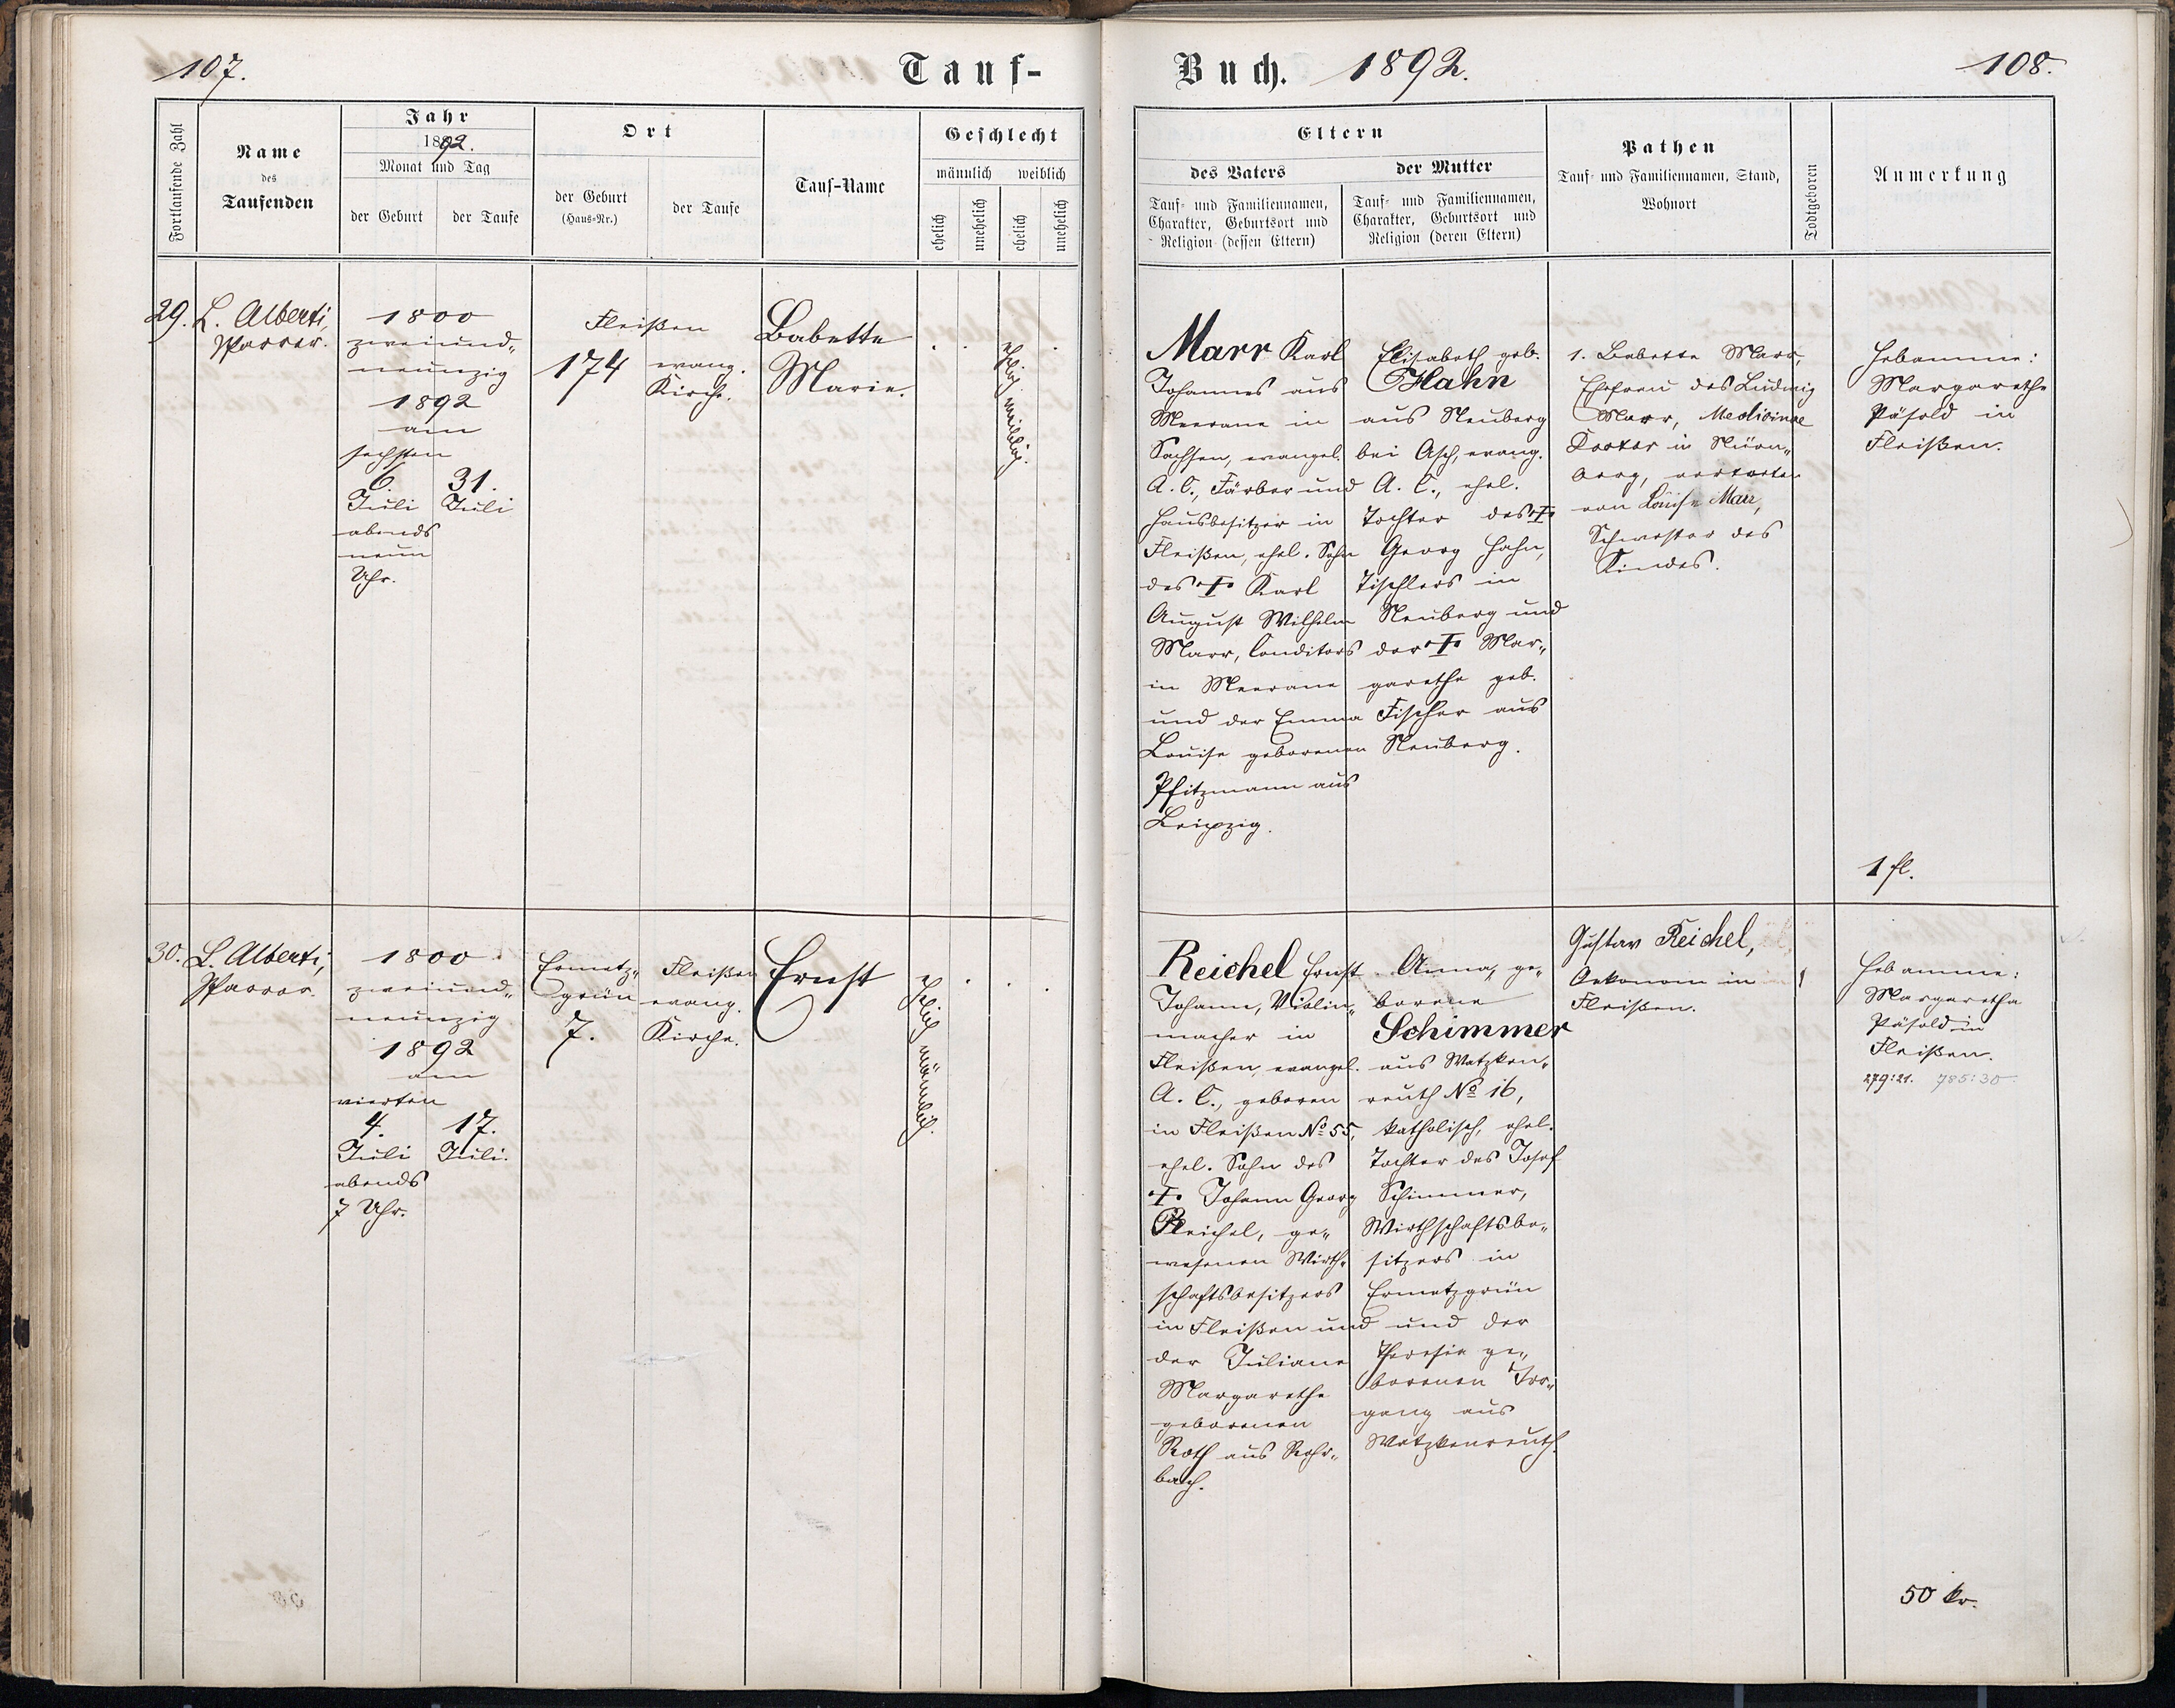 107.
Tauf-
Fortlaufende Zahl
Name
des
Taufenden
Jahr
1892.
Monat und Tag
der Geburt
der Taufe
Ort
der Geburt
(Haus-Nr.)
der Taufe
Tauf-Name
Geschlecht
männlich
weiblich
ehelich
unehelich
ehelich
unehelich
29.
L. Alberti,
Pfarrer.
1800
zweiund-
neunzig
1892
am
sechsten
6.
Juli
abends
neun
Uhr.
31.
Juli
Fleißen
174
evang.
Kirche.
Babette
Marie.
ehelich weiblich.
30.
L. Alberti,
Pfarrer.
1800
zweiund-
neunzig
1892
am
vierten
4.
Juli
abends
7 Uhr.
17.
Juli.
Ermetz-
grün
7.
Fleißen
evang.
Kirche.
Ernst
ehelich männlich.
Buch. 1892.
108.
Eltern
des Vaters
Tauf- und Familiennamen,
Charakter, Geburtsort und
Religion (dessen Eltern)
der Mutter
Tauf- und Familiennamen,
Charakter, Geburtsort und
Religion (deren Eltern)
Pathen
Tauf- und Familiennamen, Stand,
Wohnort
Todtgeboren
Anmerkung
Marr Karl
Johannes aus
Meerane in
Sachsen, evangel.
A. C., Färber und
Hausbesitzer in
Fleißen, ehel. Sohn
des † Karl
August Wilhelm
Marr, Conditors
in Meerane
und der Emma
Louise geborenen
Pfitzmann aus
Leipzig.
Elisabeth geb.
Hahn
aus Neuberg
bei Asch, evang.
A. C., ehel.
Tochter des †
Georg Hahn,
Tischlers in
Neuberg und
der † Mar-
garethe geb.
Fischer aus
Neuberg.
1. Babette Marr,
Ehefrau des Ludwig
Marr, Medicinae
Doctor in Nürn-
berg, vertreten
von Louise Marr,
Schwester des
Kindes.
Hebamme:
Margarethe
Päsold in
Fleißen.
1 fl.
Reichel Ernst
Johann, Violin-
macher in
Fleißen, evangel.
A. C., geboren
in Fleißen No 55,
ehel. Sohn des
† Johann Georg
Reichel, ge-
wesenen Wirth-
schaftsbesitzers
in Fleißen und
der Juliane
Margarethe
geborenen
Roth aus Rohr-
bach.
Anna, ge-
borene
Schimmer
aus Watzken-
reuth No 16,
katholisch, ehel.
Tochter des Josef
Schimmer,
Wirthschaftsbe-
sitzers in
Ermetzgrün
und der
Theresia ge-
borenen Ir-
gang aus
Watzkenreuth.
Gustav Reichel,
Oekonom in
Fleißen.
Hebamme:
Margaretha
Päsold in
Fleißen.
279:21. 785:30.
50 kr.